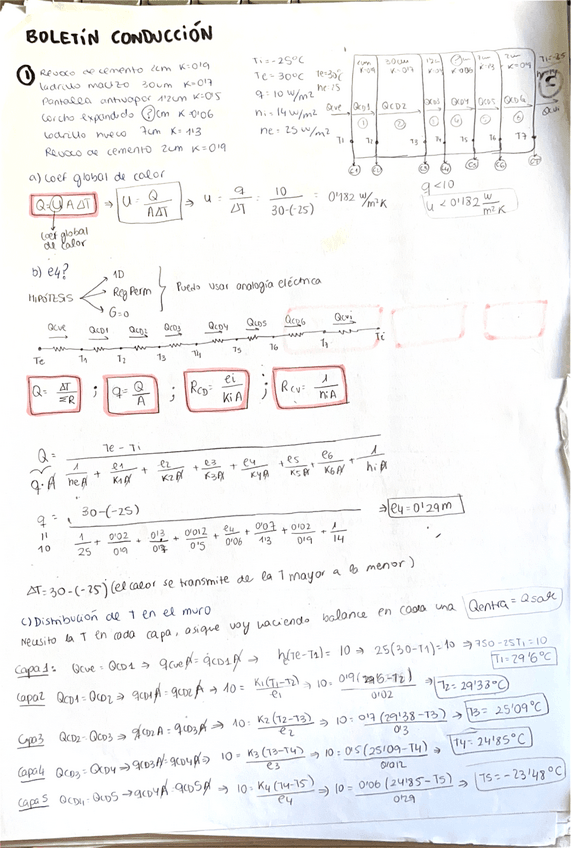 BOLETÍN CONDUCCIÓN
① Revoco de cemento 2cm K=0'9
Ladrillo macizo 30cm K=0'7
Pantalla antivapor 1'2cm K=0'5
Corcho expandido ?cm K=0'06
Ladrillo hueco 7cm K=1'3
Revoco de cemento 2cm K=0'9
Ti=-25°C
Te=30°C
q=10 W/m²
ni=14 W/m²
ne=25 W/m²
Te=30°C
he=25
Ti=-25
Qcve QCD1 QCD2 QCD3 QCD4 QCD5 QCD6 Qcvi
T1 T2 T3 T4 T5 T6 T7
a) Coef global de calor
Q=U A ΔT ⇒ U = Q/AΔT ⇒ U = q/ΔT = 10/30-(-25) = 0'182 W/m²K
q<10
U<0'182 W/m²K
Coef global de calor
b) e4?
HIPÓTESIS
1D
Reg Perm
G=0
Puedo usar analogía eléctrica
Qcve QCD1 QCD2 QCD3 QCD4 QCD5 QCD6 Qcvi
Te T1 T2 T3 T4 T5 T6 Ti
Q=ΔT/ΣR ; q=Q/A ; RCD=ei/KiA ; Rcv=1/hiA
Q = Te-Ti / 1/heA + e1/K1A + e2/K2A + e3/K3A + e4/K4A + e5/K5A + e6/K6A + 1/hiA
q·A
q = 30-(-25) / 1/25 + 0'02/0'9 + 0'3/0'7 + 0'012/0'5 + e4/0'06 + 0'07/1'3 + 0'02/0'9 + 1/14 ⇒ e4=0'29m
10
ΔT=30-(-25) (el calor se transmite de la T mayor a la menor)
c) Distribución de T en el muro
Necesito la T en cada capa, asique voy haciendo balance en cada una Qentra=Qsale
Capa 1: Qcve=QCD1 ⇒ qcveA=qCD1A ⇒ h(Te-T1)=10 ⇒ 25(30-T1)=10 ⇒ 750-25T1=10
T1=29'6°C
Capa2 QCD1=QCD2 ⇒ qCD1A=qCD2A ⇒ 10=K1(T1-T2)/e1 ⇒ 10=0'9(29'6-T2)/0'02 ⇒ T2=29'38°C
Capa3 QCD2=QCD3 ⇒ qCD2A=qCD3A ⇒ 10=K2(T2-T3)/e2 ⇒ 10=0'7(29'38-T3)/0'3 ⇒ T3=25'09°C
Capa4 QCD3=QCD4 ⇒ qCD3A=qCD4A ⇒ 10=K3(T3-T4)/e3 ⇒ 10=0'5(25'09-T4)/0'012 ⇒ T4=24'85°C
Capa5 QCD4=QCD5 ⇒ qCD4A=qCD5A ⇒ 10=K4(T4-T5)/e4 ⇒ 10=0'06(24'85-T5)/0'29 ⇒ T5=-23'48°C